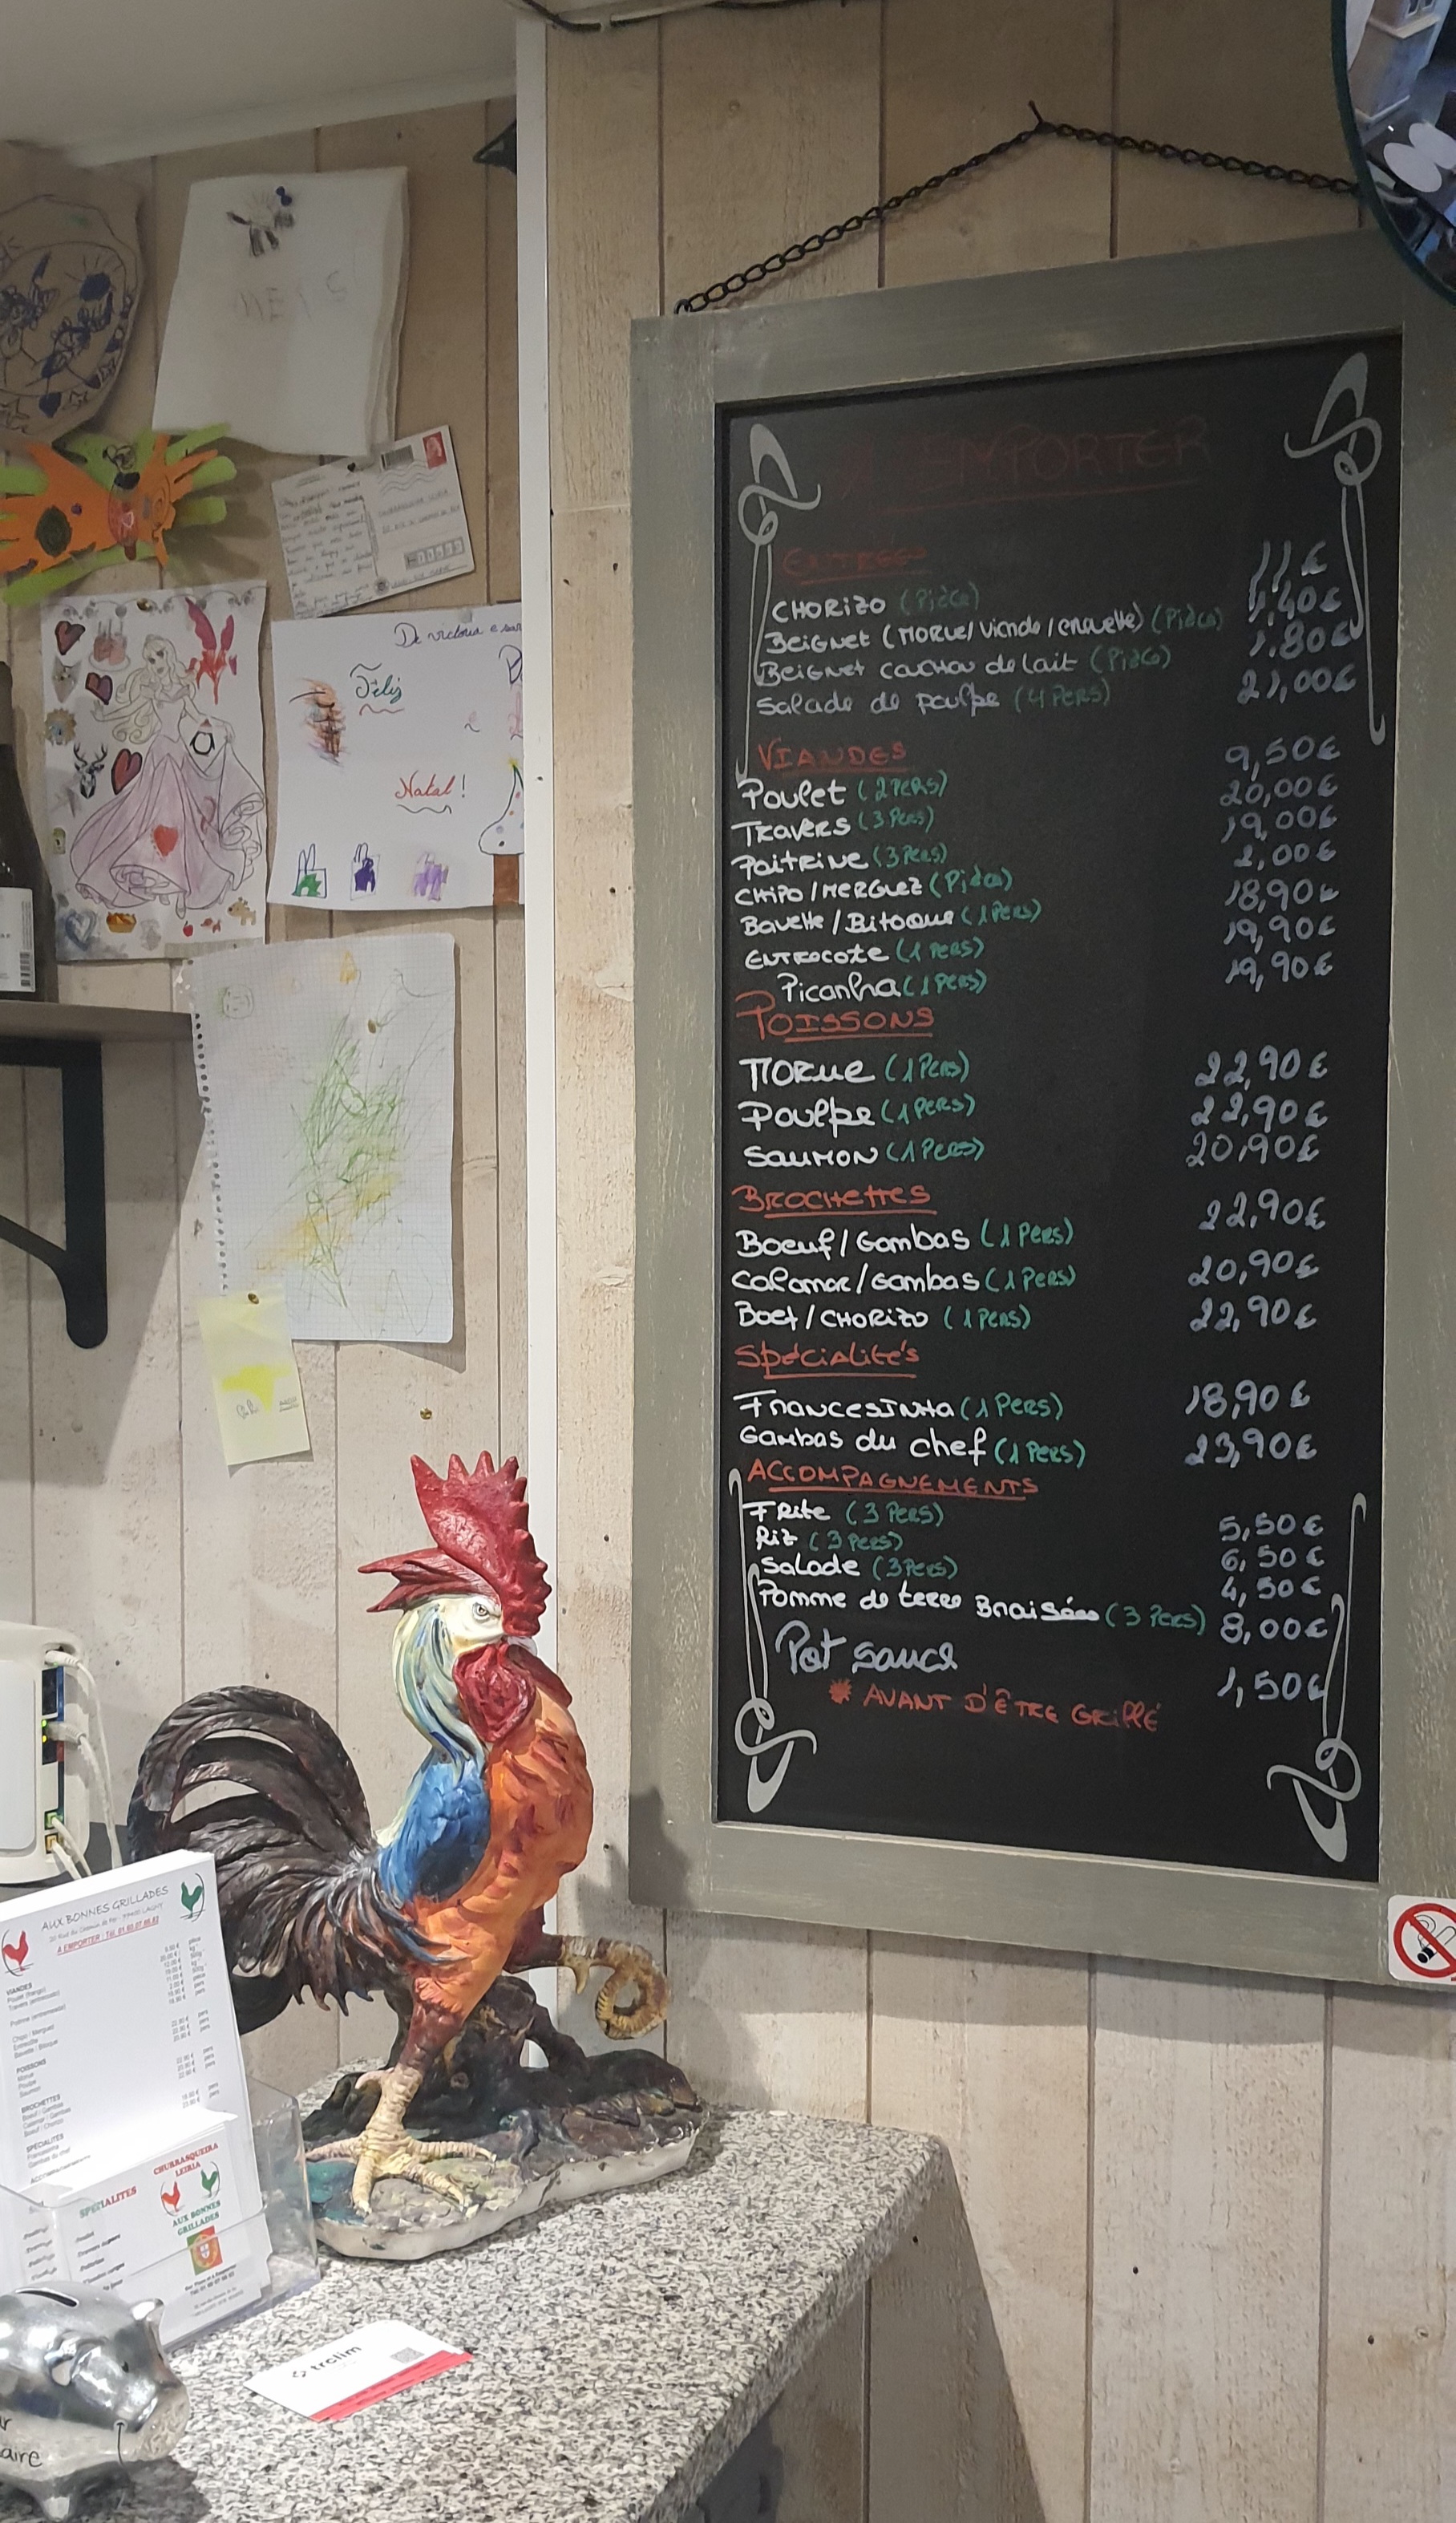 À EMPORTER
ENTRÉES
CHORIZO (Pièce) 11€
Beignet (MORUE/Viande/crevette) (Pièce) 1,40€
Beignet cochon de lait (Pièce) 1,80€
Salade de poulpe (4 PERS) 21,00€
VIANDES
Poulet (2 PERS) 9,50€
TRAVERS (3 Pers) 20,00€
Poitrine (3 Pers) 19,00€
CHIPO/MERGUEZ (Pièce) 2,00€
Bavette/Bitoque (1 Pers) 18,90€
ENTRECOTE (1 PERS) 19,90€
Picanha (1 Pers) 19,90€
POISSONS
MORUE (1 Pers) 22,90€
Poulpe (1 PERS) 22,90€
SAUMON (1 Pers) 20,90€
BROCHETTES
Boeuf/Gambas (1 Pers) 22,90€
Calamar/Gambas (1 Pers) 20,90€
Boef/CHORIZO (1 Pers) 22,90€
Spécialités
FRANCESINHA (1 Pers) 18,90€
Gambas du chef (1 Pers) 23,90€
ACCOMPAGNEMENTS
FRite (3 PERS) 5,50€
Riz (3 Pers) 6,50€
Salade (3 Pers) 4,50€
Pomme de terre Braisées (3 Pers) 8,00€
Pot sauce 1,50€
* AVANT D'ÊTRE GRillÉ
De victoria e
Féliz
Natal !
AUX BONNES GRILLADES
A EMPORTER : Tél.
VIANDES
Chipo / Merguez
Entrecôte
Bavette / Bitoque
POISSONS
Morue
Poulpe
Saumon
BROCHETTES
Boeuf / Gambas
Calamar / Gambas
Boeuf / Chorizo
SPÉCIALITÉS
Francesinha
Gambas du chef
CHURRASQUEIRA
LEIRIA
SPECIALITES
AUX BONNES
GRILLADES
trelim
aire